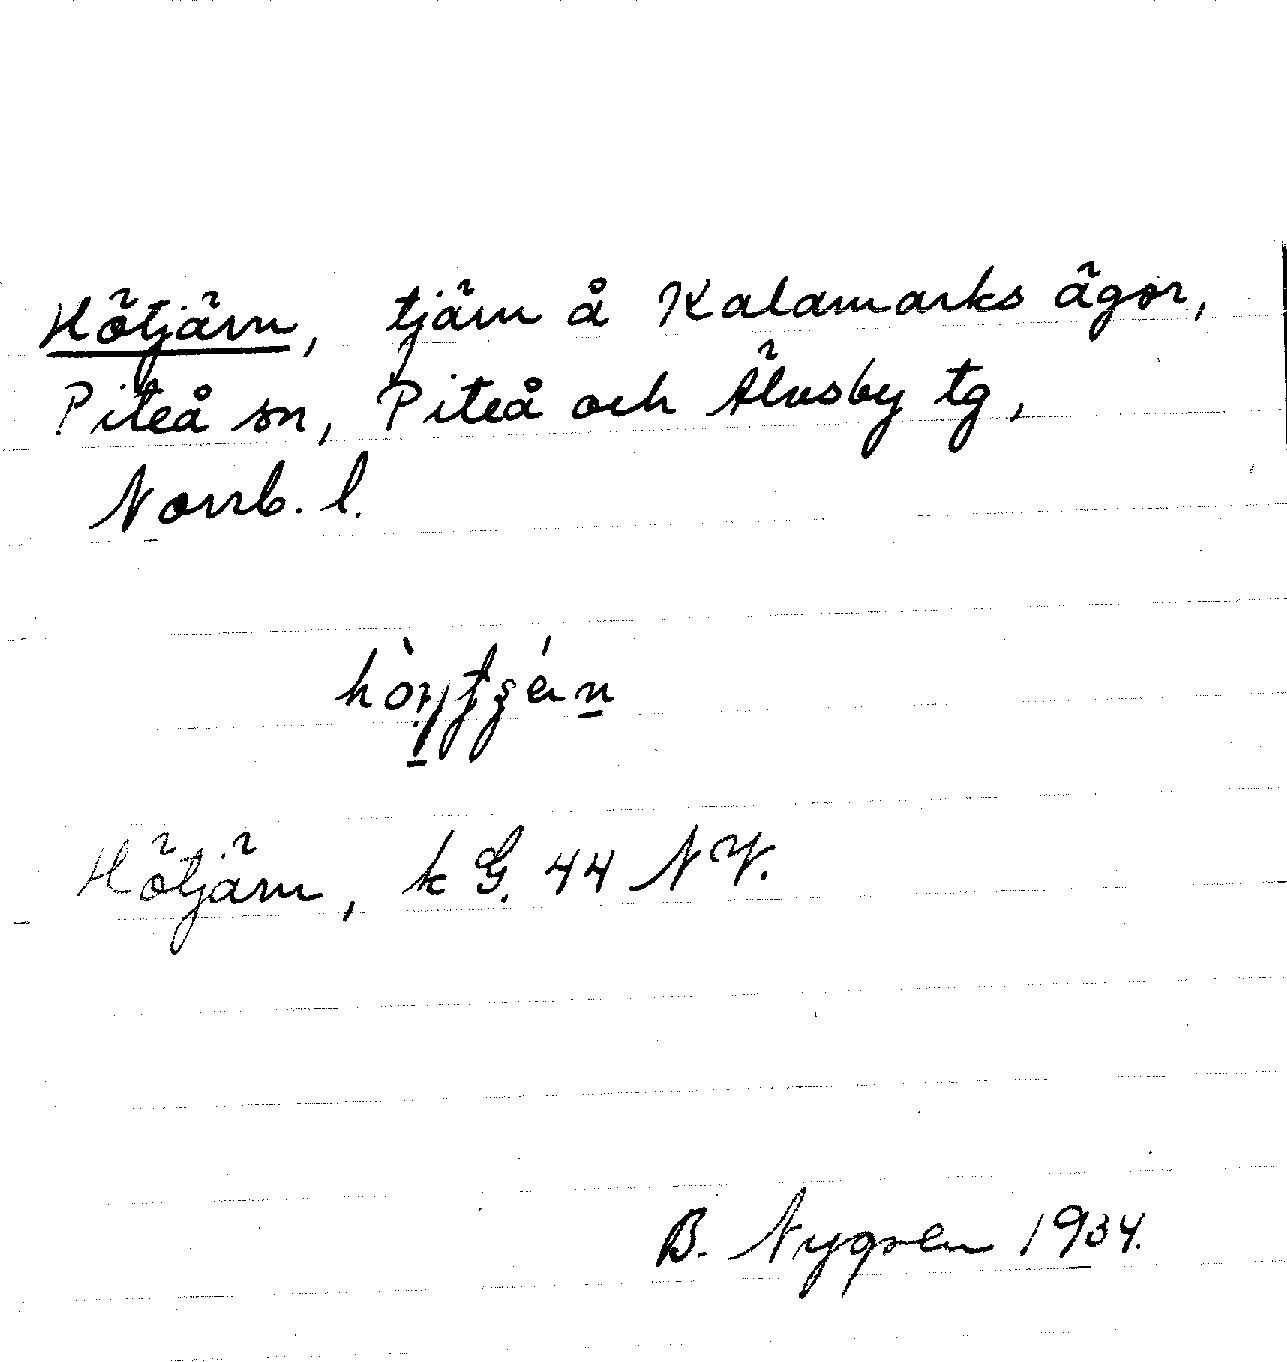 Hötjärn, tjärn å Kalamarks ägor,
Piteå sn, Piteå och Älvsby tg,
Norrb. l.
Hötjärn, k G. 44 NV.
B. Nygren 1934.